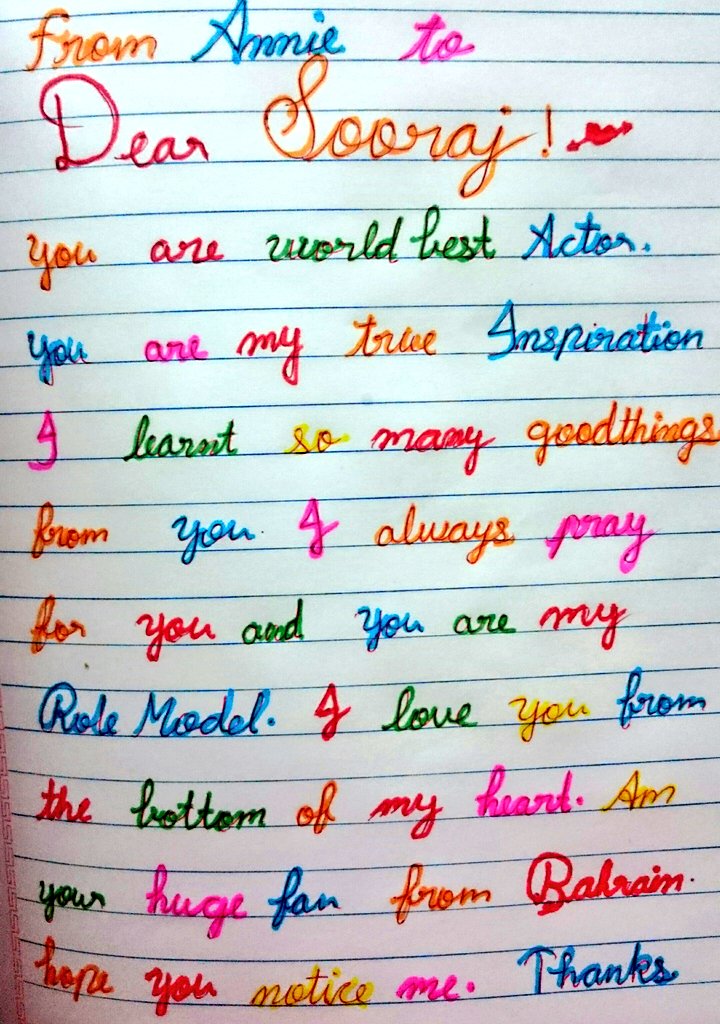 from Annie to
Dear Sooraj!
you are world best Actor.
you are my true Inspiration
I learnt so many goodthings
from you I always pray
for you and you are my
Role Model. I love you from
the bottom of my heart. Am
your huge fan from Bahrain.
hope you notice me. Thanks